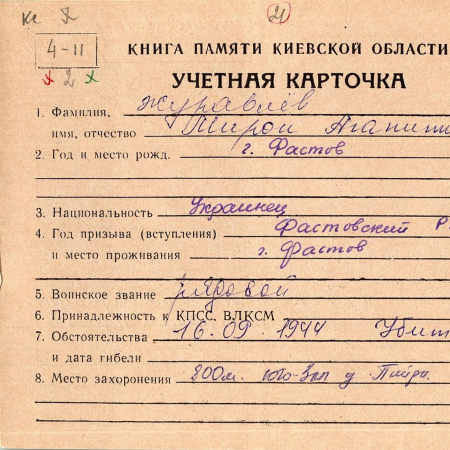 21
4-11
2
КНИГА ПАМЯТИ КИЕВСКОЙ ОБЛАСТИ
УЧЕТНАЯ КАРТОЧКА
1. Фамилия, Журавлёв
имя, отчество Мирон Агапит
2. Год и место рожд. г. Фастов
3. Национальность Украинец
4. Год призыва (вступления) Фастовский Р
и место проживания г. Фастов
5. Воинское звание рядовой
6. Принадлежность к КПСС, ВЛКСМ
7. Обстоятельства 16.09.1944 Убит
и дата гибели
8. Место захоронения 800м. юго-Зап д.